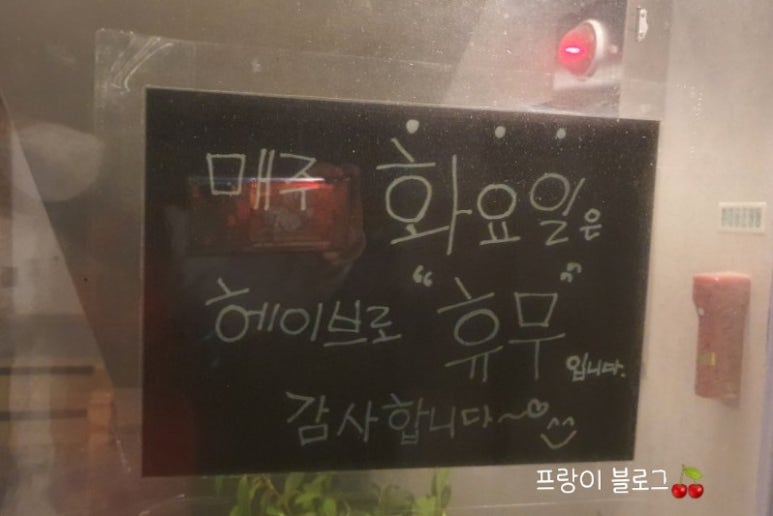 매주 화요일은
헤이브로 "휴무"입니다.
감사합니다~♡
프랑이 블로그🍒